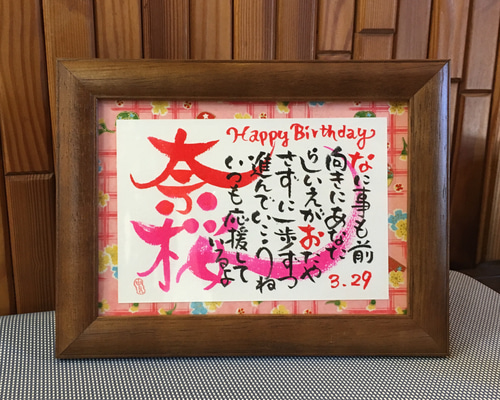 Happy Birthday
なに事も前
向きにあなた
らしいえがおたや
さずに一歩ずつ
進んでいこうね
いつも応援して
いるよ
3.29
奈桜